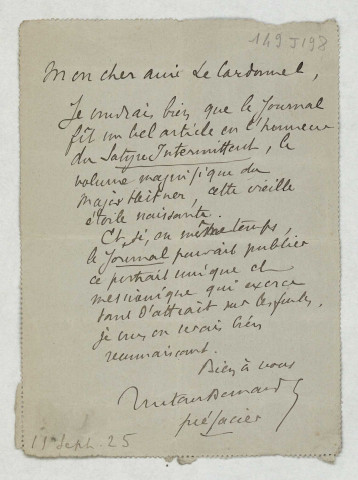 149 J 198
Mon cher ami Le Cardonnel,
Je voudrais bien que le Journal
fît un bel article en l'honneur
du Satyre Intermittent, le
volume magnifique du
Major Heitner, cette vieille
étoile naissante.
Et, si, en même temps,
le Journal pouvait publier
ce portrait unique et
messianique qui exerce
tant d'attrait sur les foules,
je vous en serais bien
reconnaissant.
Bien à vous
Tristan Bernard
préfacier
11 Sept. 25